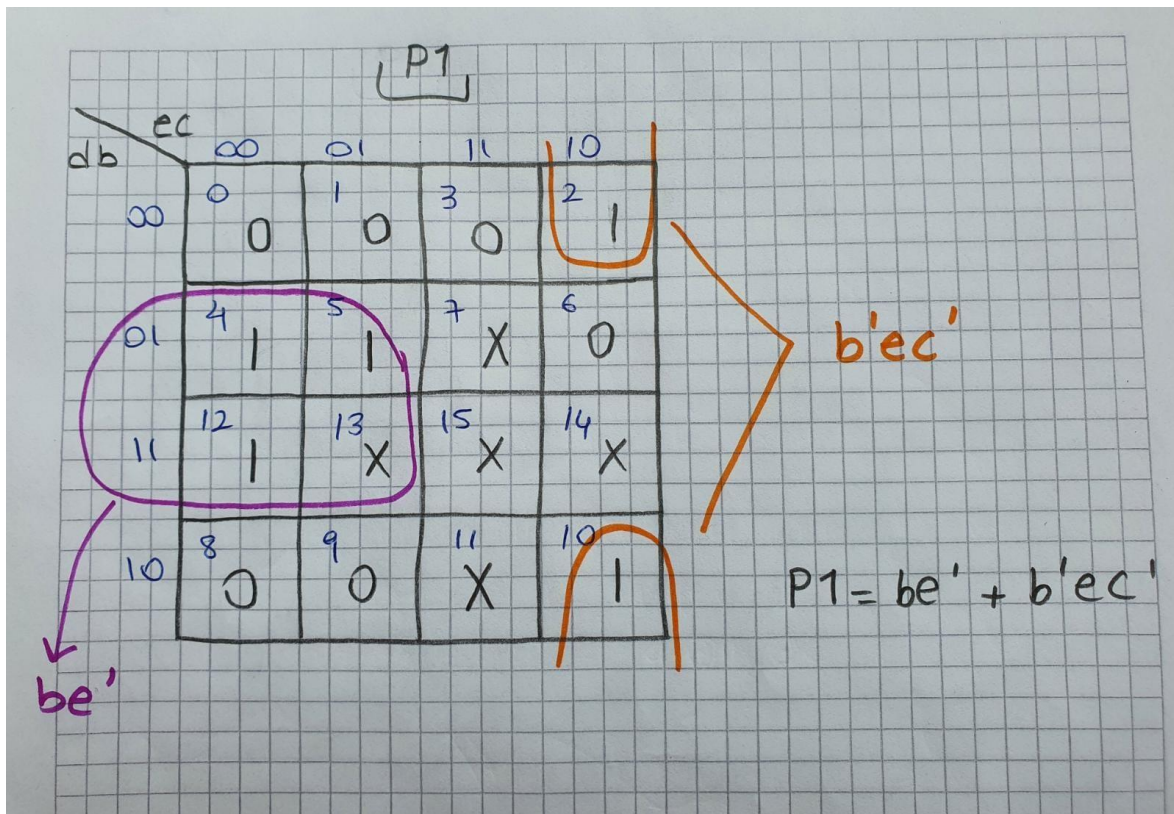 P1
ec
db
00 01 11 10
00 0 0 1 0 3 0 2 1
01 4 1 5 1 7 X 6 0
11 12 1 13 X 15 X 14 X
10 8 0 9 0 11 X 10 1
b'ec'
P1 = be' + b'ec'
be'